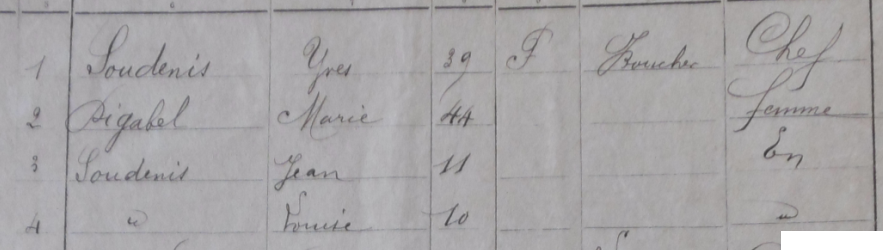 1 Soudenis Yves 39 F Boucher Chef
2 Rigabel Marie 44 femme
3 Soudenis Jean 11 En
4 " Louise 10 "